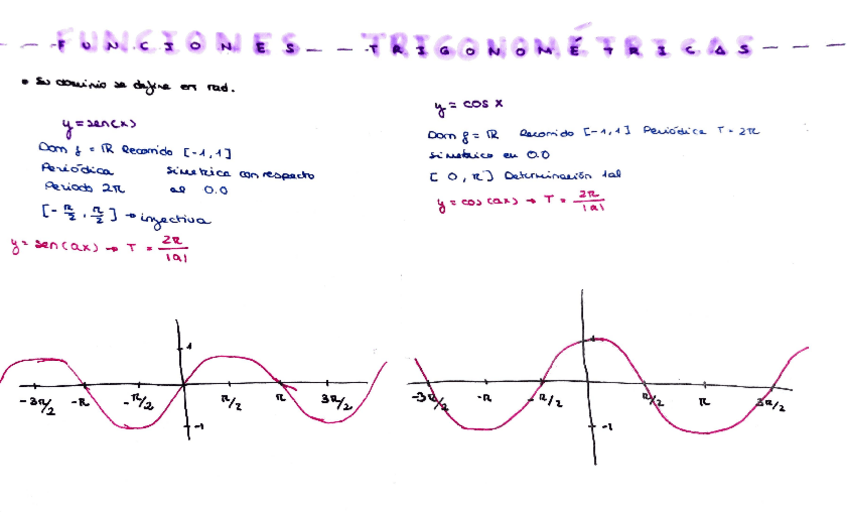 FUNCIONES TRIGONOMÉTRICAS
• Su dominio se define en rad.
y = sen(x)
Dom f = ℝ Recorrido [-1,1]
Periódica simetrica con respecto
Periodo 2π al 0.0
[-π/2, π/2] → inyectiva
y = sen(ax) → T = 2π/|a|
y = cos x
Dom f = ℝ Recorrido [-1,1] Periódica T = 2π
simetrico en 0.0
[0, π] Determinación 1al
y = cos(ax) → T = 2π/|a|
1
-3π/2 -π -π/2 π/2 π 3π/2
-1
1
-3π/2 -π -π/2 π/2 π 3π/2
-1